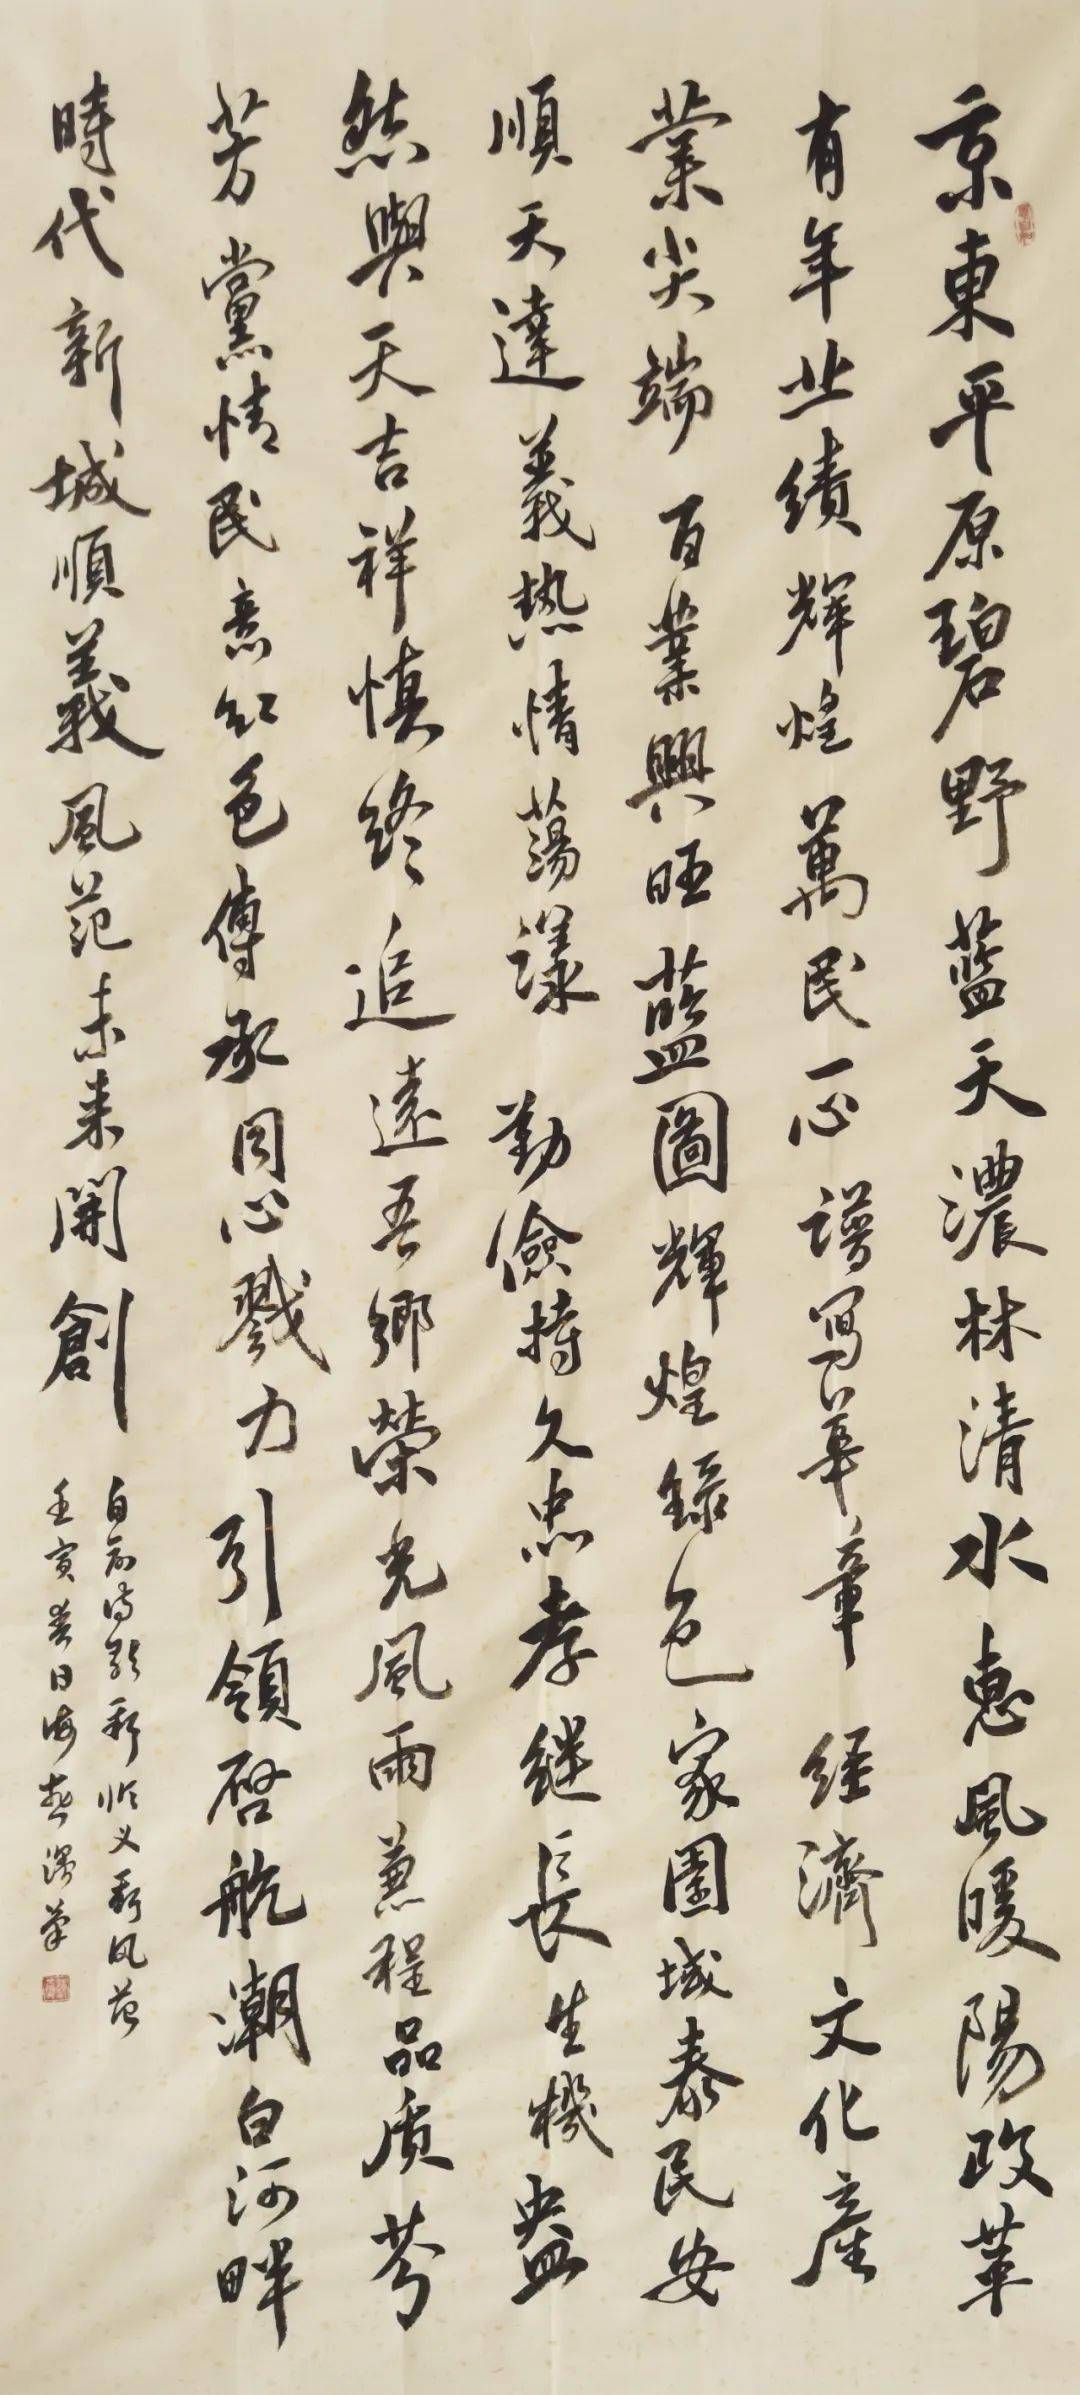 京東平原碧野藍天濃林清水惠風暖陽政華
有年業績輝煌萬民一心譜寫華章經濟文化產
業尖端百業興旺藍圖輝煌綠色家園域泰民安
順天達義熱情蕩漾勤儉持久忠孝繼長生機盎
然與天吉祥慎終追遠吾鄉榮光風雨兼程品质芬
芳黨情民意紅色傳承同心戮力引領啓航潮白河畔
時代新城順義風范未来開創
自
壬寅